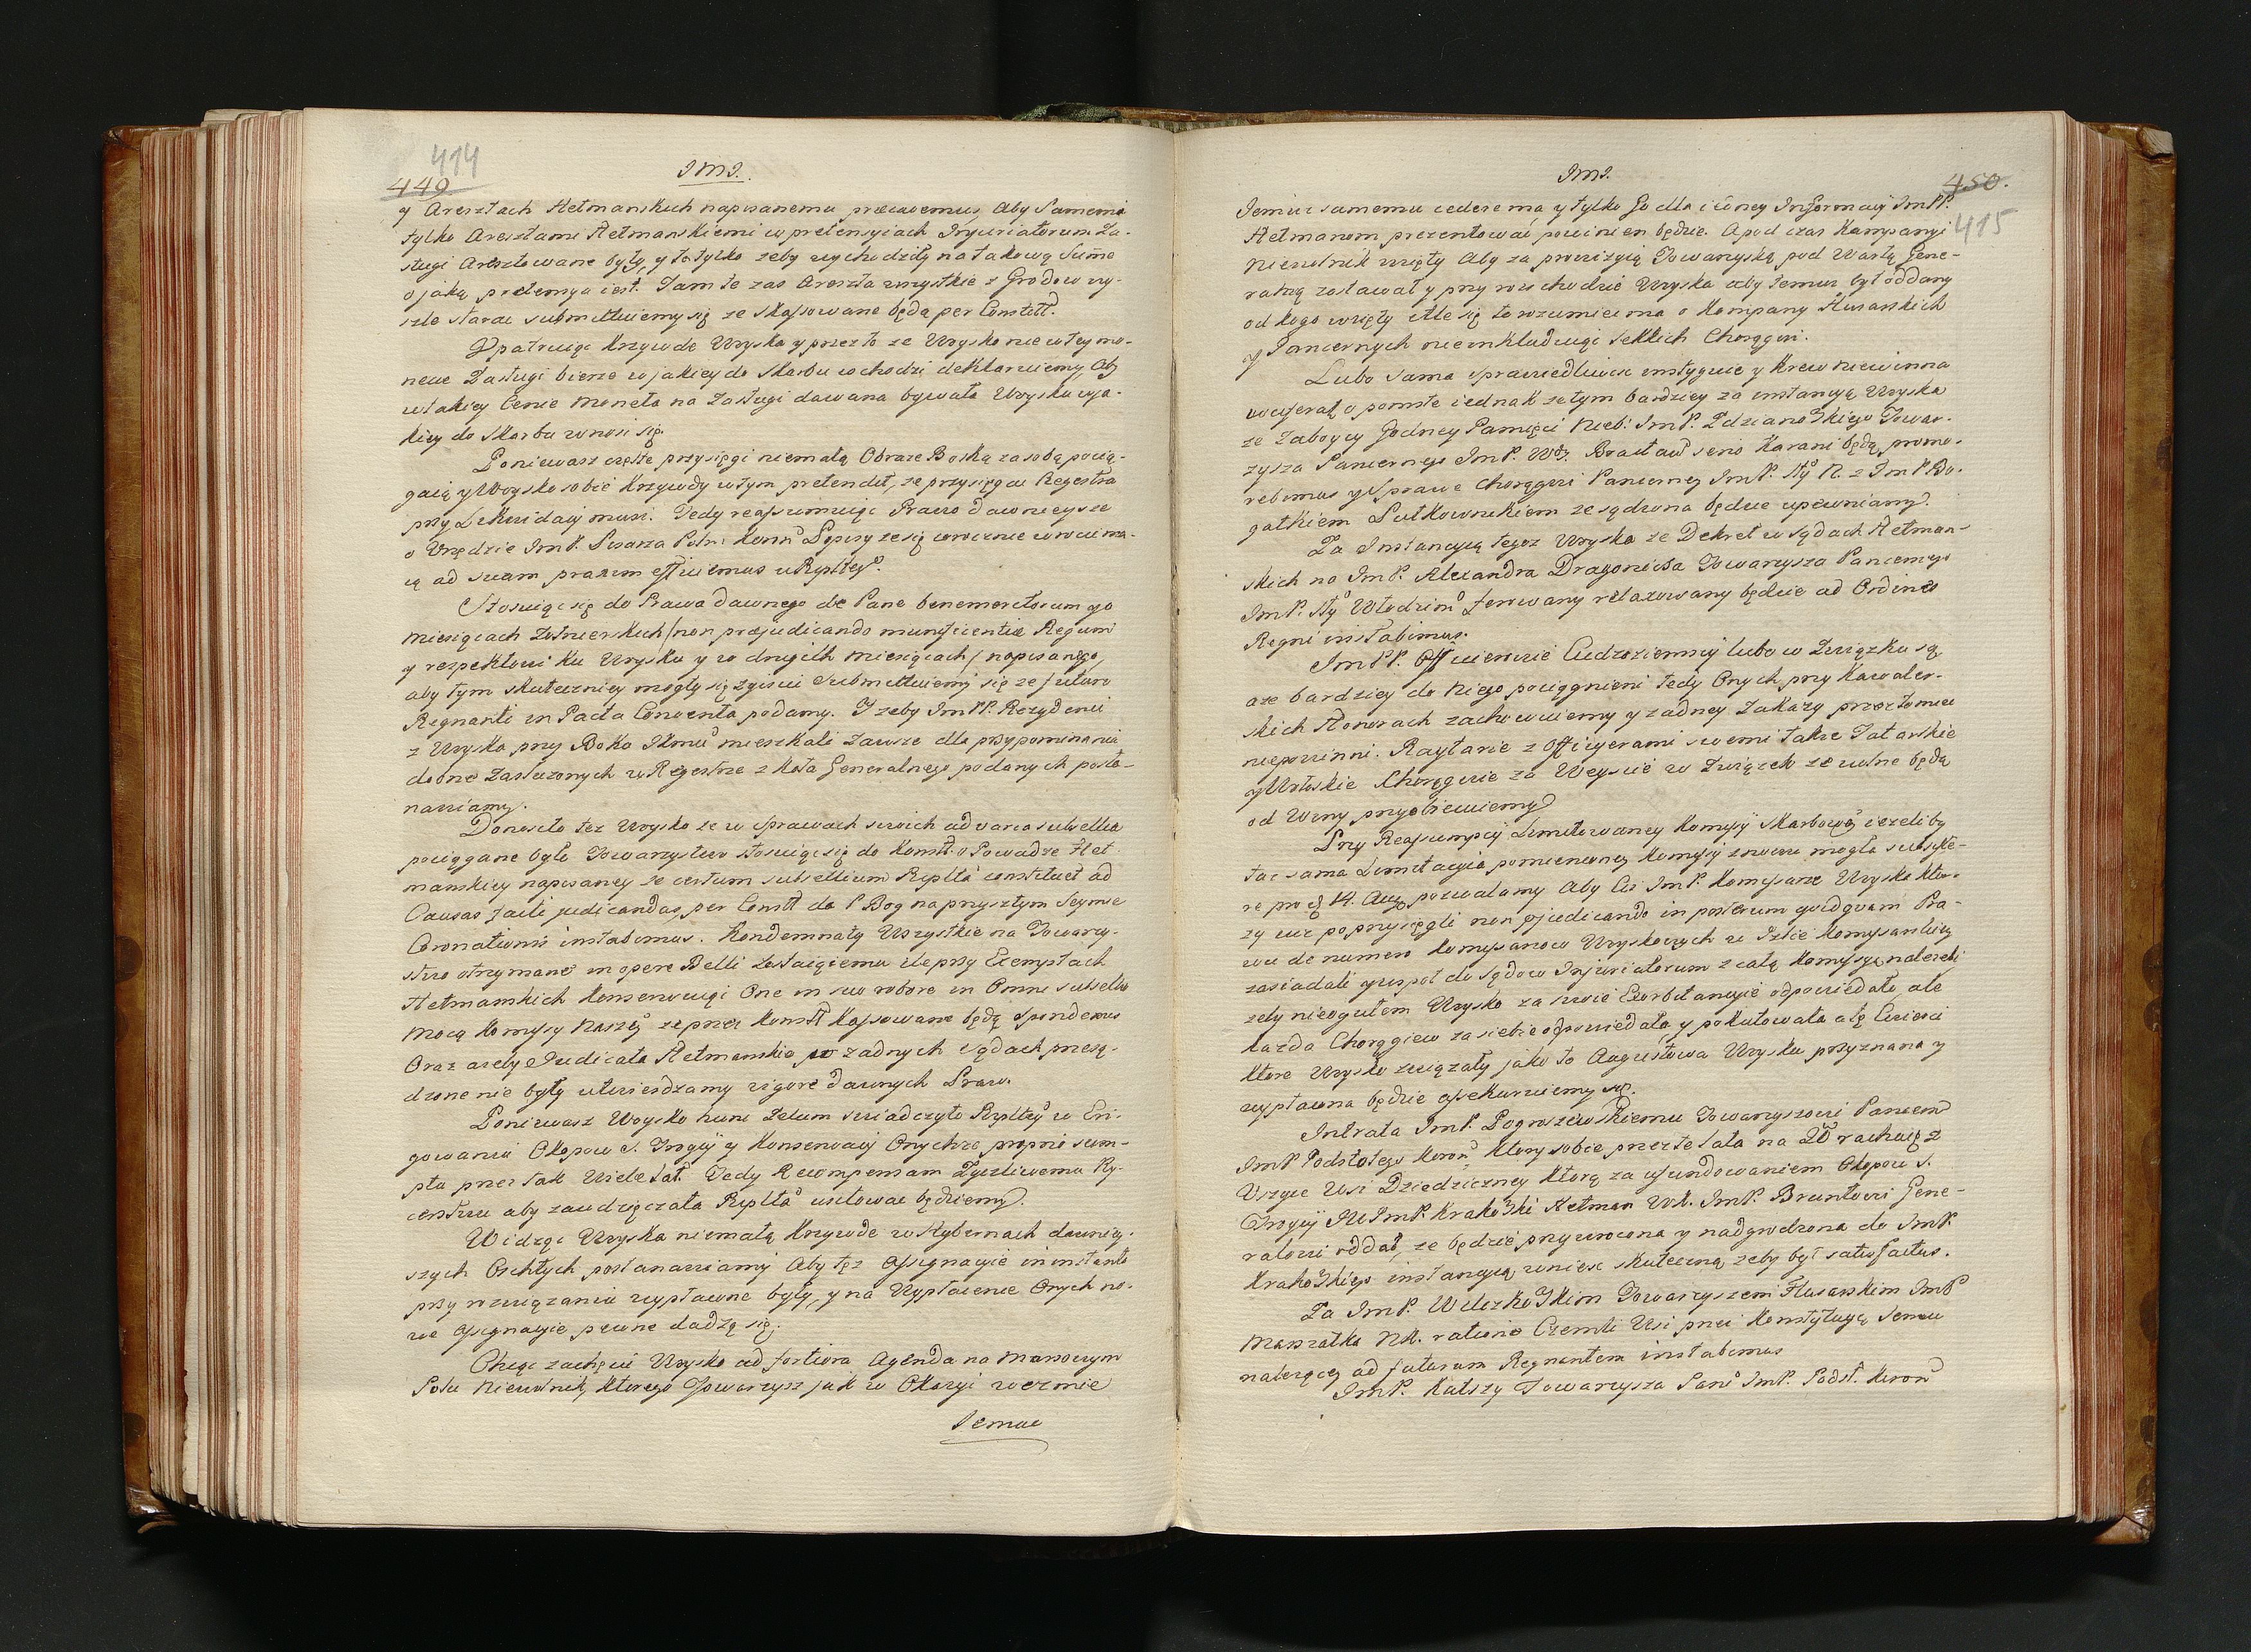 414
449
IMI.
y Aresztach Hetmanskich napisanemu przeciwemus, Aby Samemi
tylko Aresztami Hetmanskiemi w pretensyiach Injuriatorum Za-
sługi Aresztowane były, y to tylko zeby wychodziły na takową Summę
o jaką pretensya iest. Jam te zas Areszta wszystkie z Grodow wy-
szłe starać submittuiemy się ze skassowane będą per Constitt.
Upatruiąc Krzywdę Woyska y przez to ze Woysko nie w tey mo-
necie Zasługi bierze w jakiey do Skarbu wchodzi deklaruiemy, Aby
w takiey Cenie Moneta na Zasługi dawana bywała Woysku w ja-
kiey do Skarbu wnosi się.
Poniewasz częste przysięgi niemałą Obrazę Boską za sobą pocią-
gaią y Woysko sobie Krzywdy w tym pretendit, ze przysięgać Regestra
przy Likwidacij musi. Tedy reassumuiąc Prawo dawnieysze
o Urzędzie ImP. Pisarza Poln: Koron Popisy ze się corocznie wrocić ma-
ią ad suam praxim efficiemus u Rpltey.
Stosuiąc się do Prawa dawnego de Pane benemeritorum po
Miesiącach Zołnierskich / non praejudicando munificentiae Regum
y respektowi ku Woysku y w drugich Miesiącach / napisanego,
aby tym skuteczniey mogły się ziscić submittuiemy się ze futuro
Regnanti in Pacta Conventa podamy. I zeby ImPP. Rezydenci
z Woyska przy Boku JKmci mieszkali zawsze dla przypominania
dobrze Zasłuzonych w Regestrze z Koła Generalnego podanych posta-
nawiamy.
Donosiło tez Woysko ze w sprawach swoich ad varia subsellia
pociągane było Towarzystwo stosuiąc się do Konstt. o Powadze Het-
manskiey napisaney ze certum subsellium Rplta constituet ad
Causas facti judicandas, per Constt da P Bog na przyszłym Seymie
Coronationis instabimus. Kondemnaty Wszystkie na Towarzy-
stwo otrzymane in opere Belli zostaiącemu ile przy Exemptach
Hetmanskich Konserwuiąc One in suo robore in Omni subsellio
mocą Komysyi Naszey ze przez Konstt Kassowane będą spondemus
Oraz azeby Judicata Hetmanskie w zadnych Sądach przesą-
dzone nie były utwierdzamy vigore dawnych Praw.
Poniewasz Woysko hunc Zelum swiadczyło Rpltey w Eri-
gowaniu Okopow S. Troycy y Konserwacij Onychze proprio sum-
ptu przez tak Wiele Lat. Tedy Recompensam Zyczliwemu Ry-
cerstwu aby zawdzięczała Rplta usiłować będziemy.
Widząc Woyska niemałą Krzywdę w Hybernach dawniey-
szych Oschłych postanawiamy Aby tez Assignacyie in instanti
przy rozwiązaniu wypłacone były, y na Wypłacenie Onych no-
we Assignacyie pewne dadzą się.
Chcąc zachęcić Woysko ad fortiora Agenda na Marsowym
Polu Niewolnik, ktorego Towarzysz jak w Okazyi wezmie
Jemuz
IMI.
450.
415
Jemuz samemu cedere ma y tylko Go dla iedney Informacij ImPP.
Hetmanom prezentować powinien będzie. A pod czas Kampanyi
Niewolnik wzięty Aby za prowizyią Towarzyską pod Wartą Gene-
ralną zostawał y przy rozchodzie Woyska aby Jemuz był oddany
od kogo wzięty Ale się to rozumieć ma o Kompany Husarskich
y Pancernych nie inkluduiąc lekkich Chorągwi.
Lubo sama sprawiedliwosc instyguie y Krew niewinna
wociferat o pomstę iednak ze tym bardziey za instancyą Woyska
ze Zaboycy Godney Pamięci Nieb: ImP. Zdzianoskiego Towar-
zysza Pancernego ImP. Wdy. Bractaw serio karani będą promo-
vebimus y Sprawę Chorągwi Pancerney ImP. Sty N. z ImP Bo-
gatkiem Pułkownikiem ze sądzona będzie upewniamy.
Za Instancyią tegoz Woyska ze Dekret w Sądach Hetman-
skich na ImP. Alexandra Dragonicsa Towarzysza Pancernego
ImP. Sty Włodzim ferowany relaxowany będzie ad Ordines
Regni instabimus.
ImPP. Officierowie Cudzoziemscy lubo w Związku są
aze bardziey do niego pociągnieni tedy Onych przy Kawaler-
skich Honorach zachowuiemy y zadney Zakazy przez to miec
niepowinni. Raytarie z Officyerami swemi takze Tatarskie
y Wołoskie Chorągwie za Weyscie w Związek ze wolne będą
od Winy przyobiecuiemy.
Przy Reassumpcij Limitowaney Komysij Skarbowey iezeliby
taz sama Limitacyia pomienioney Komysij znowu mogła subsyste-
re pro 14. Aug. pozwalamy Aby Ci ImP. Komysarze Woyska kto-
rzy iuz poprzysięgli non praejudicando in posterum quidquam Pra-
wu de numero Komysarzow Woyskowych w Izbie Komysarskiey
zasiadali y wespoł do Sądow Injuriatorum z całą Komysyą nalezeli
zeby nie ogułem Woysko za swoie Exorbitancyie odpowiedało, ale
kazda Chorągiew za siebie odpowiedała, y pokutowała a tę Cwierci
ktore Woysko związały jako to Augustowa Woysku przyznana y
wypłacona będzie assekuruiemy się.
Intrata ImP. Pogoszewskiemu Towarzyszowi Pancern
ImP Podstolego Koron, ktory sobie przez te lata na 20 rachuię z
Wszyie Wsi Dziedziczney ktorą za ufundowaniem Okopow S.
Troycy JWImP. Krakoski Hetman WK. ImP. Bruntowi Gene-
rałowi oddał, ze będzie przywrocona y nadgrodzona do ImP.
Krakoskiego instancyą wniesc skuteczną zeby był satisfactus.
Za ImP. Wilczkoskim Towarzyszem Husarskim ImP
Marszałka NK. ratione Czemli Wsi przez Konstytucyą Jemu
nalezącey ad futurum Regnantem instabimus
ImP. Kulszy Towarzysza Panc ImP. Podst. Koron